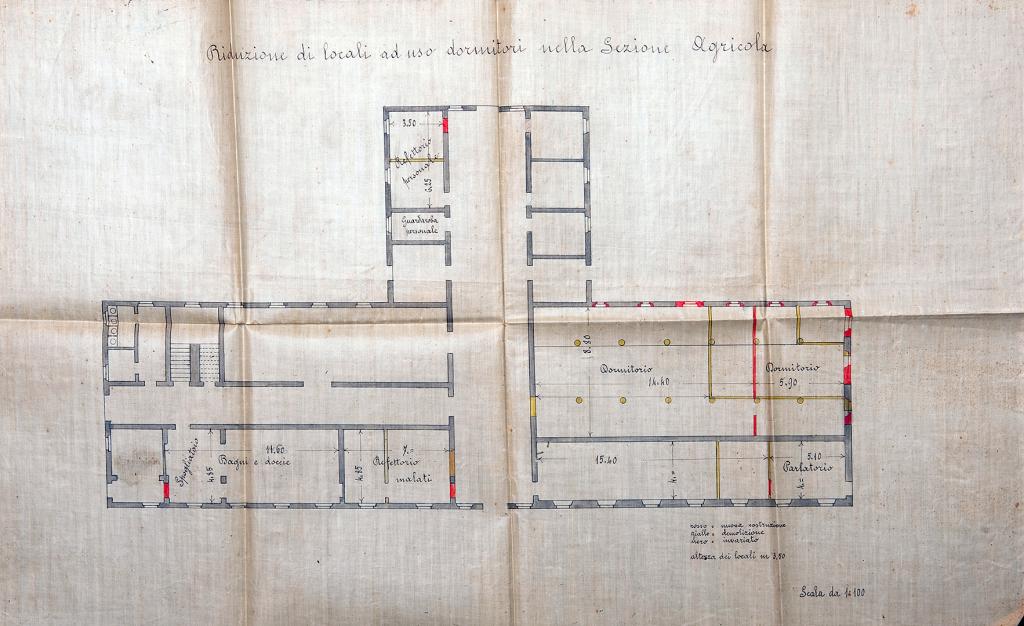 Riduzione di locali ad uso dormitori nella Sezione Agricola
3.50
Refettorio
personale
6.25
Guardaroba
personale
8.80
Dormitorio
14.40
Dormitorio
5.90
Spogliatoio
11.60
Bagni e docce
4.85
4.85
7.=
Refettorio
malati
15.40
4.=
5.10
Parlatorio
4.=
rosso = nuova costruzione
giallo = demolizione
nero = invariato
altezza dei locali m 3,50
Scala da 1:100